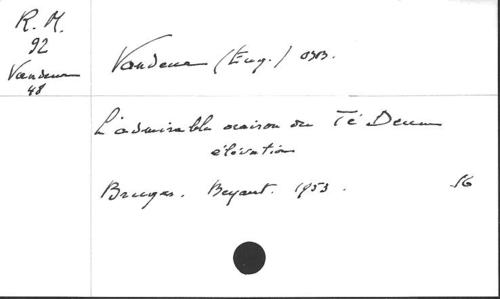 R. M.
92
Vandeur
48
Vandeur (Eug.) OSB.
L'admirable oraison du Té Deum
élévation
Bruges. Beyaert. 1953.
56